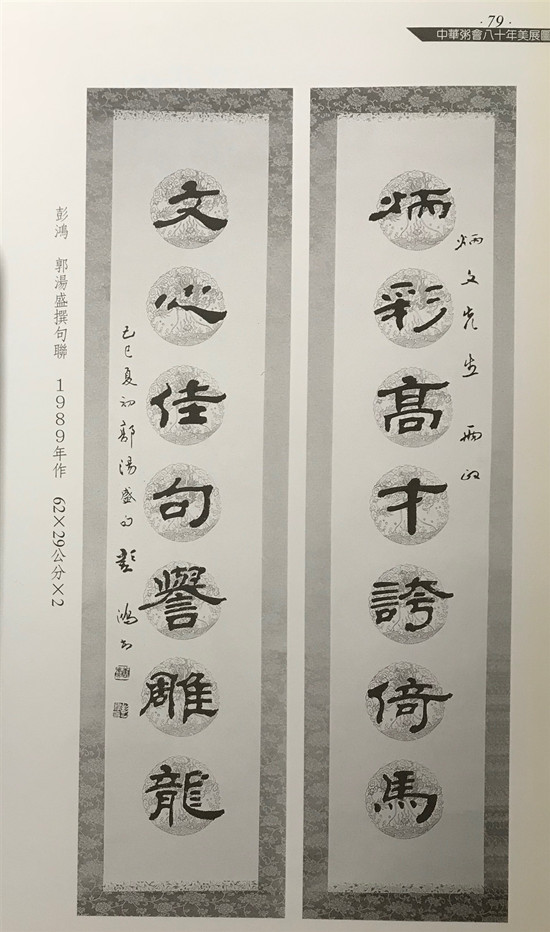 · 79 ·
中華粥會八十年美展圖
炳文先生
炳彩高才誇倚馬
文心佳句譽雕龍
己巳夏初郭湯盛句 彭鴻書
彭鴻 郭湯盛撰句聯 1989年作 62×29公分×2